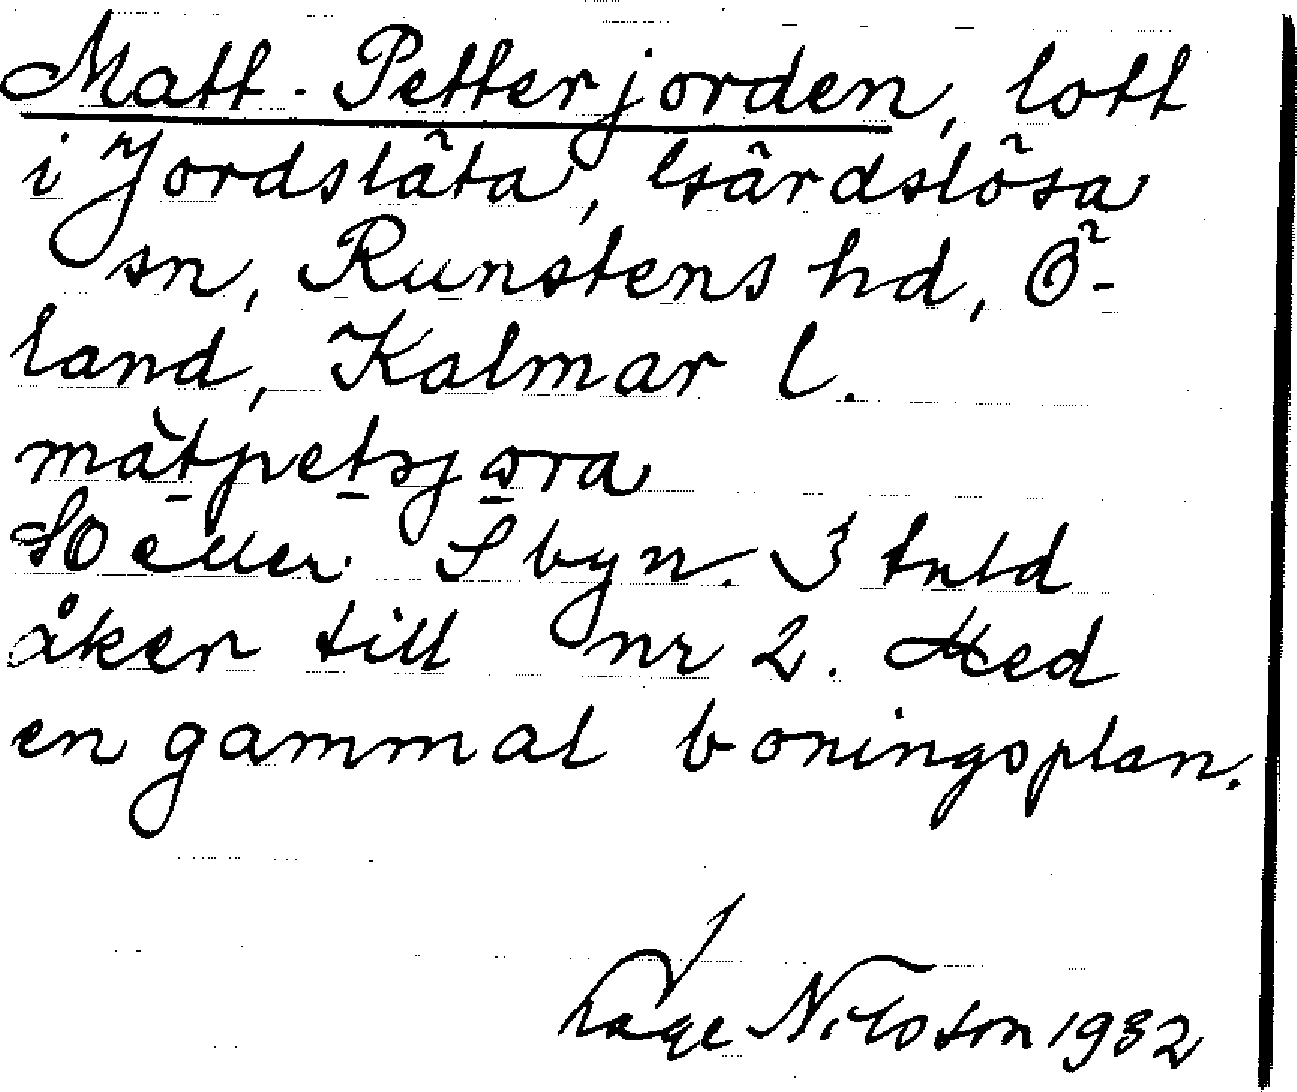 Matt-Petterjorden, lott
i Jordsläta, Gärdslösa
sn, Runstens hd, Ö-
land, Kalmar l.
màtpetsjora
SO eller S byn. 3 tnld
åker till nr 2. Med
en gammal boningsplan.
Lage Nilsson 1932